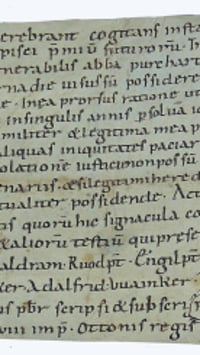 erebrant cogitans insta
pisei p̄miū futurorū. In
nerabilis abba pure har
rna die ususū possidere
e. Inea prorsus ratione ut
insingulis annis psoluā ic
militer &legitima mea p
aliquas iniquitates paciar
olatione iustitiemon possū
enariis. &silegitimi here d
tualiter possidende. Act
tis quorū hic signacula co
&aliorū testiū qui prese
aldram. Ruodp̄t. Engilp̄t
ker. Adalfrid. uuainker.
us pbr scripsi &subscrips
viiii imp̄. Ottonis regis